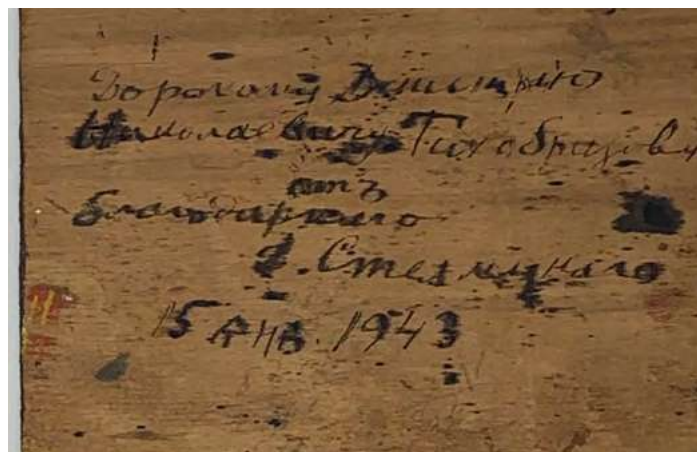 Дорогому Дмитрію
Николаевичу Тихобразову
отъ
благодарнаго
Д. Стеллецкаго
15 янв. 1943